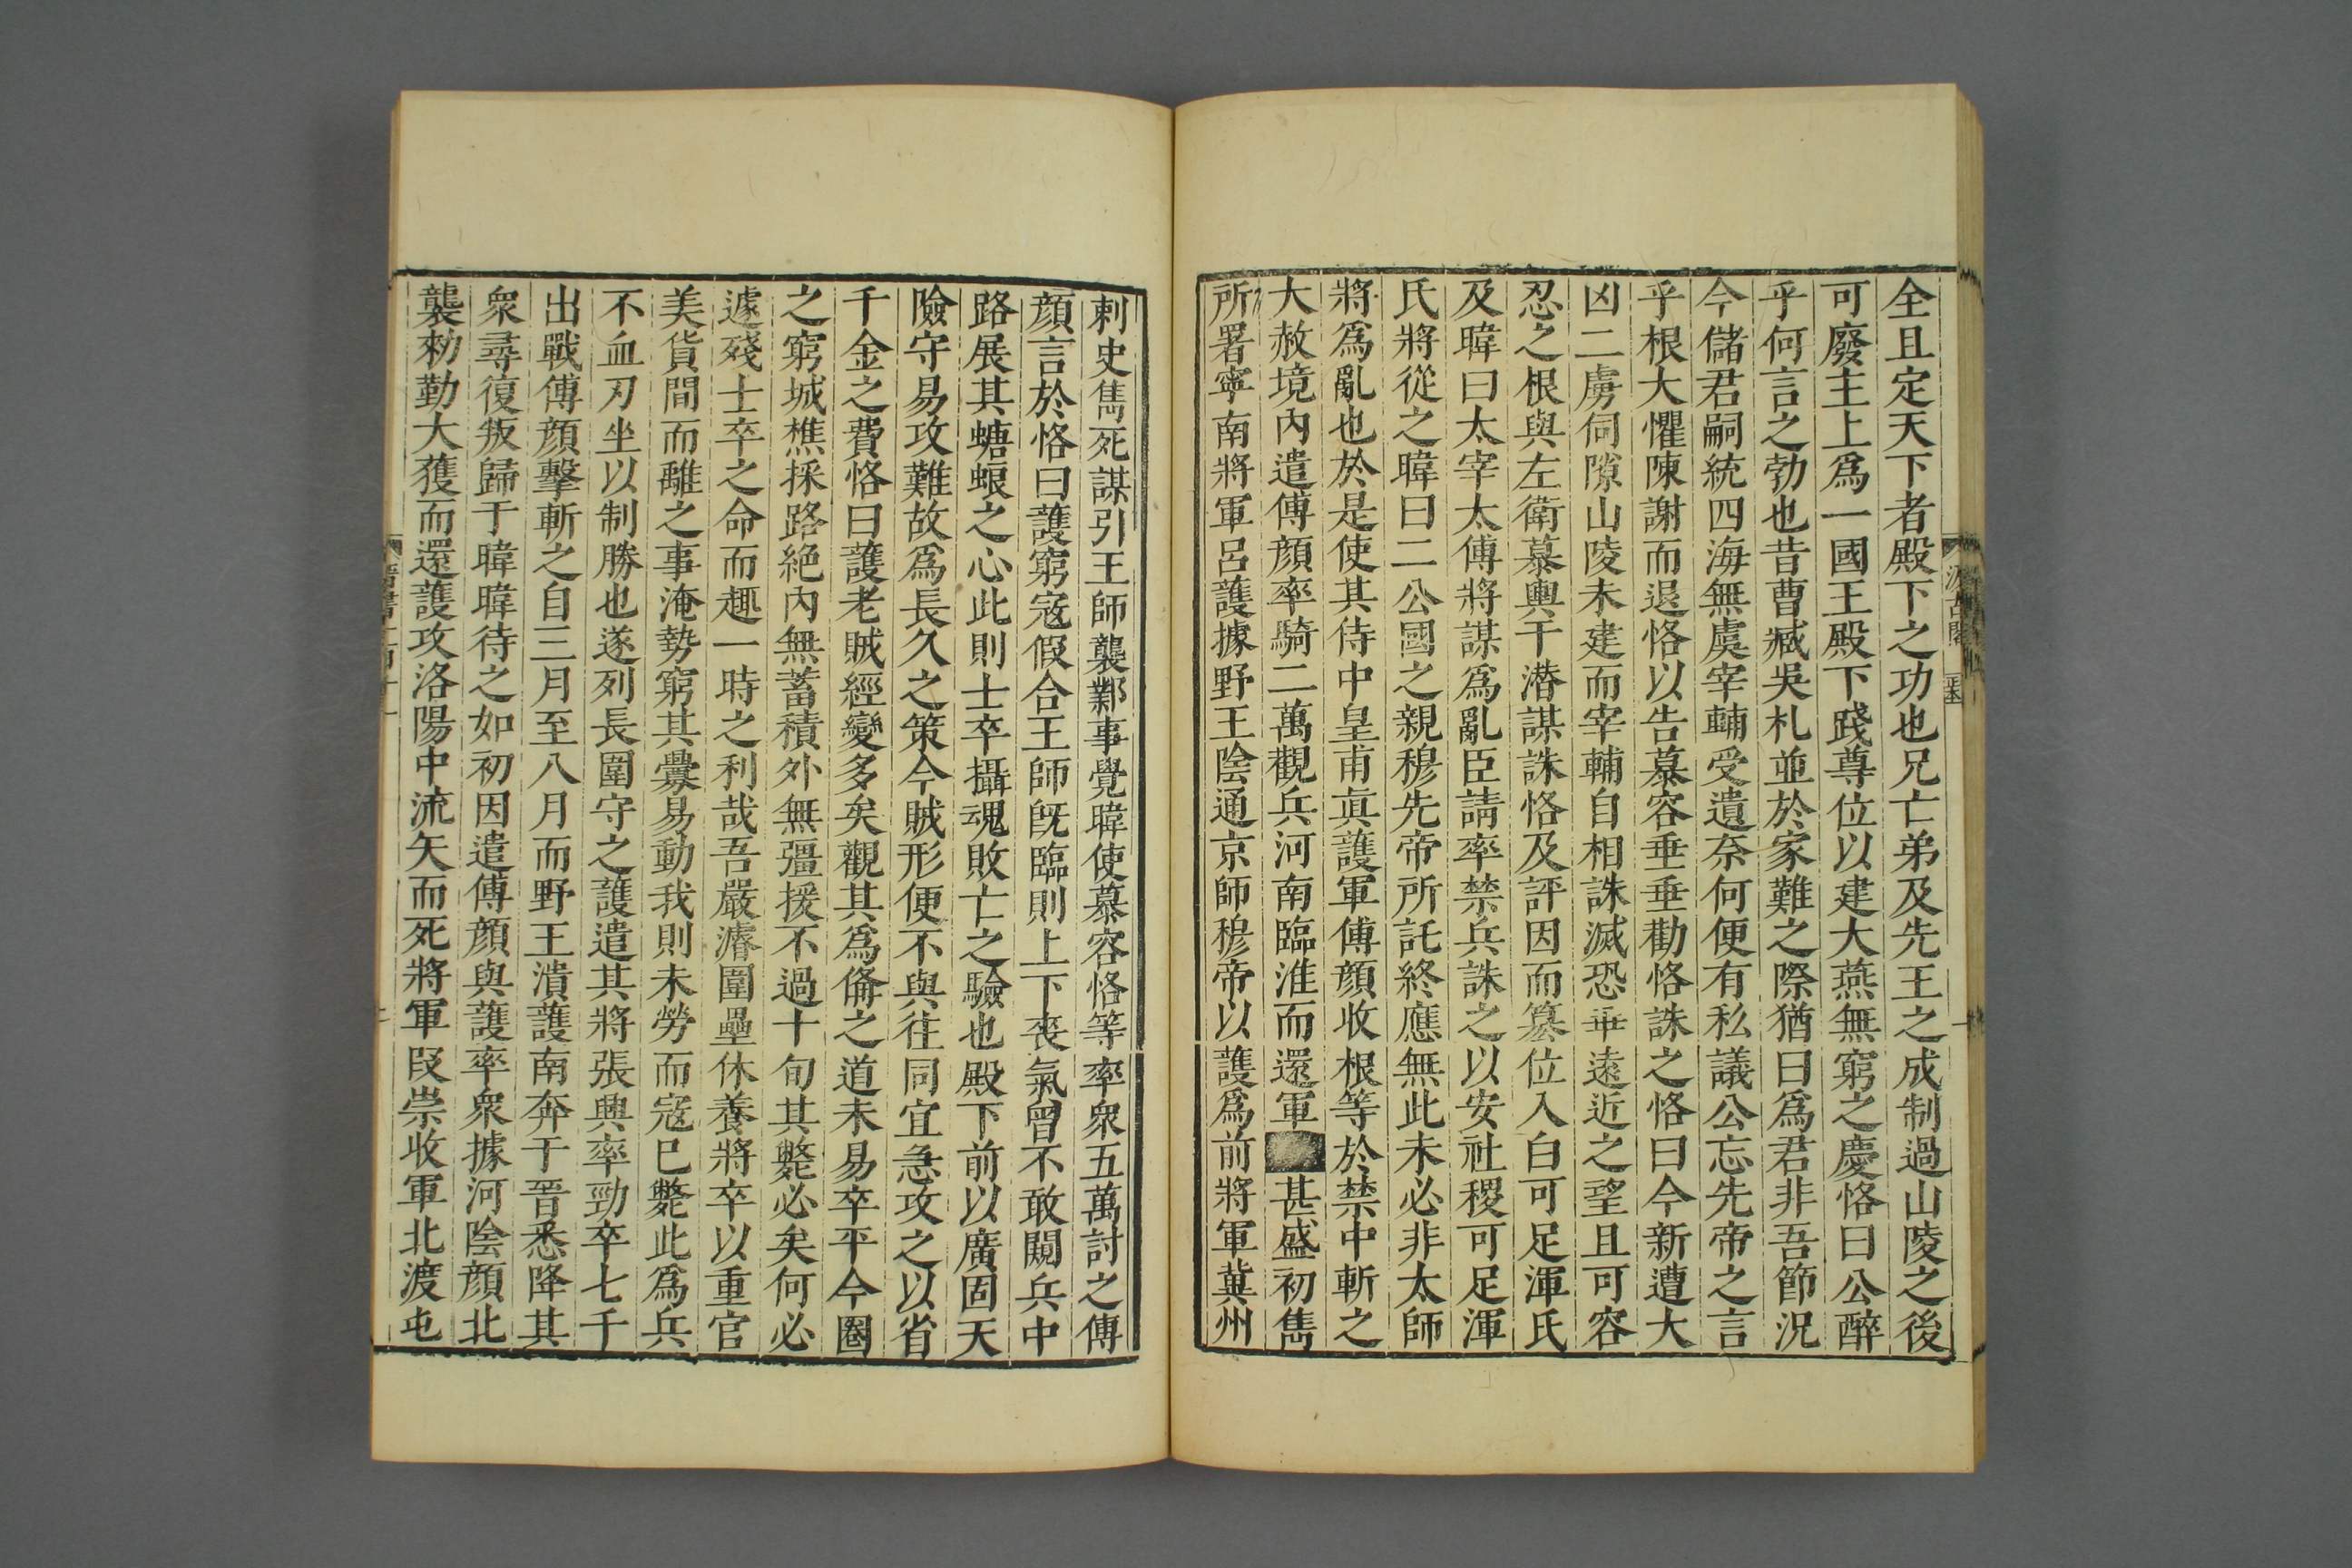 全且定天下者殿下之功也兄亡弟及先王之成制過山陵之後
可廢主上爲一國王殿下踐尊位以建大燕無窮之慶恪曰公醉
乎何言之勃也昔曹臧吳札並於家難之際猶曰爲君非吾節況
今儲君嗣統四海無虞宰輔受遺奈何便有私議公忘先帝之言
乎根大懼陳謝而退恪以告慕容垂垂勸恪誅之恪曰今新遭大
凶二虜伺隙山陵未建而宰輔自相誅滅恐乖遠近之望且可容
忍之根與左衛慕輿干潜謀誅恪及評因而簒位入白可足渾氏
及暐曰太宰太傅將謀爲亂臣請率禁兵誅之以安社稷可足渾
氏將從之暐曰二公國之親穆先帝所託終應無此未必非太師
將爲亂也於是使其侍中皇甫眞護軍傅顔收根等於禁中斬之
大赦境內遣傅顔率騎二萬觀兵河南臨淮而還軍甚盛初雋
所署寜南將軍呂護據野王陰通京師穆帝以護爲前將軍冀州
刺史雋死謀引王師襲鄴事覺暐使慕容恪等率衆五萬討之傅
顔言於恪曰護窮寇假合王師旣臨則上下喪氣曾不敢闚兵中
路展其螗蜋之心此則士卒攝魂敗亡之驗也殿下前以廣固天
險守易攻難故爲長久之策今賊形便不與往同宜急攻之以省
千金之費恪曰護老賊經變多矣觀其爲備之道未易卒平今圈
之窮城樵採路絕內無蓄積外無彊援不過十旬其斃必矣何必
遽殘士卒之命而趣一時之利哉吾嚴濬圍壘休養將卒以重官
美貨間而離之事淹勢窮其釁易動我則未勞而寇已斃此爲兵
不血刃坐以制勝也遂列長圍守之護遣其將張興率勁卒七千
出戰傅顔擊斬之自三月至八月而野王潰護南奔于晉悉降其
衆尋復叛歸于暐暐待之如初因遣傅顔與護率衆據河陰顔北
襲勑勤大獲而還護攻洛陽中流矢而死將軍段崇收軍北渡屯